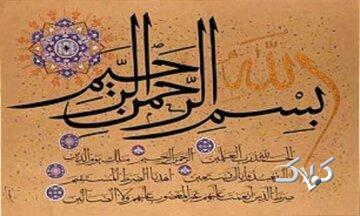 بسم الله الرحمن الرحيم
الحمد لله رب العلمين الرحمن الرحيم ملك يوم الدين
اياك نعبد واياك نستعين اهدنا الصراط المستقيم
صراط الذين انعمت عليهم غير المغضوب عليهم ولا الضالين
کولاک